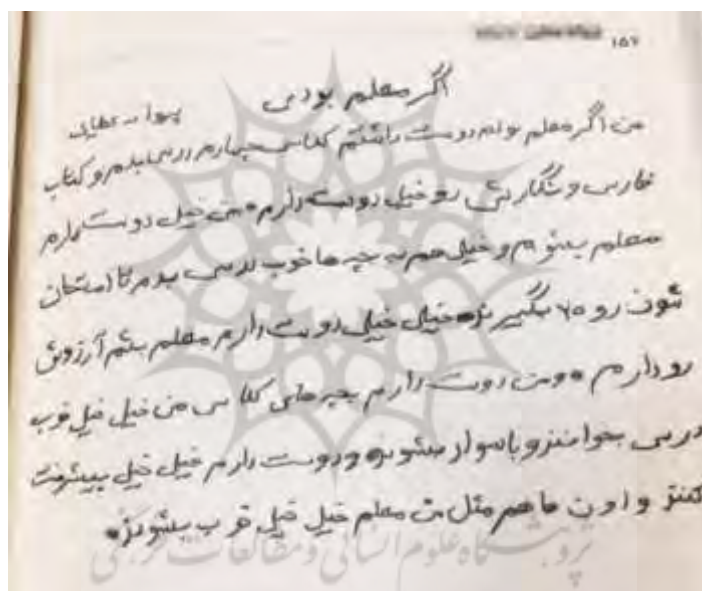 ۱۵۷
اگر معلم بودی
من اگر معلم بودم دوست داشتم کلاس چهارم درس بدم و کتاب
فارسی و نگارش رو خیلی دوست دارم من خیلی دوست دارم
معلم بشوم و خیلی هم به بچه ها خوب درس بدم تا امتحان
شون رو ۲۰ بگیرنه خیلی خیلی دوست دارم معلم بشم آرزوش
رو دارم و من دوست دارم بچه های کلاس من خیلی خیلی خوب
درس بخوانند و باسواد بشوند و دوست دارم خیلی خیلی پیشرفت
کنند و اون ها هم مثل من معلم خیلی خیلی خوب بشوند.
پژوهشگاه علوم انسانی و مطالعات فرهنگی